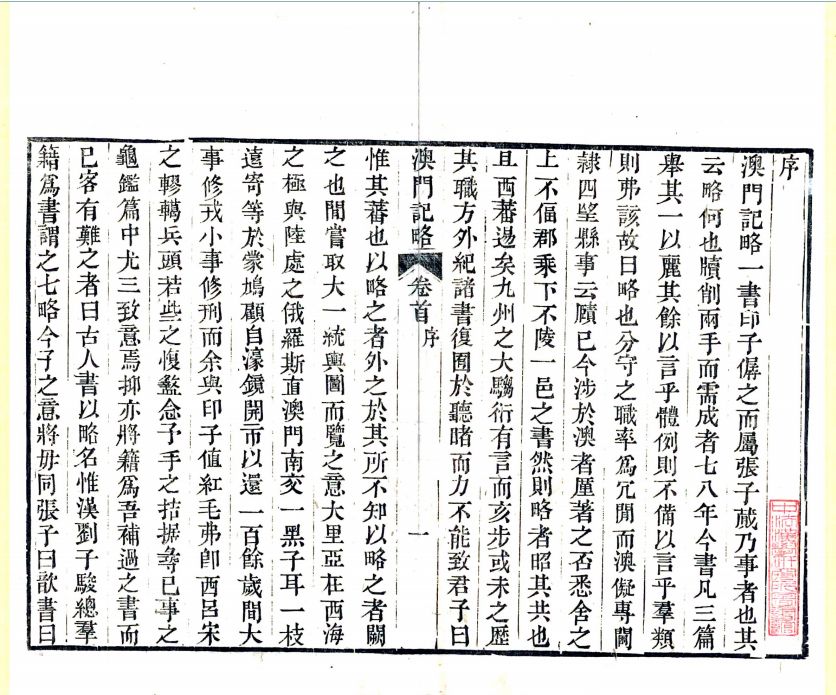 序
澳門記略一書印子僝之而屬張子蕆乃事者也其
云略何也牘削兩手而需成者七八年今書凡三篇
舉其一以麗其餘以言乎體例則不備以言乎羣類
則弗該故曰略也分守之職率爲冗閒而澳儗專閫
隷四望縣事云賾已今涉於澳者厪著之否悉舍之
上不偪郡乘下不陵一邑之書然則略者昭其共也
且西蕃邊矣九州之大騶衍有言而亥步或未之歷
其職方外紀諸書復囿於聽睹而力不能致君子曰
澳門記略 卷首 序 一
惟其蕃也以略之者外之於其所不知以略之者闕
之也閒嘗取大一統輿圖而覽之意大里亞在西海
之極與陸處之俄羅斯直澳門南交一黑子耳一枝
遠寄等於蒙鳩顧自濠鏡開市以還一百餘歲間大
事修戎小事修刑而余與印子值紅毛弗卽西呂宋
之轇轕兵頭若些之愎盭念予手之拮据等已事之
龜鑑篇中尤三致意焉抑亦將籍爲吾補過之書而
已客有難之者曰古人書以略名惟漢劉子駿總羣
籍爲書謂之七略今子之意將毋同張子曰歆書曰